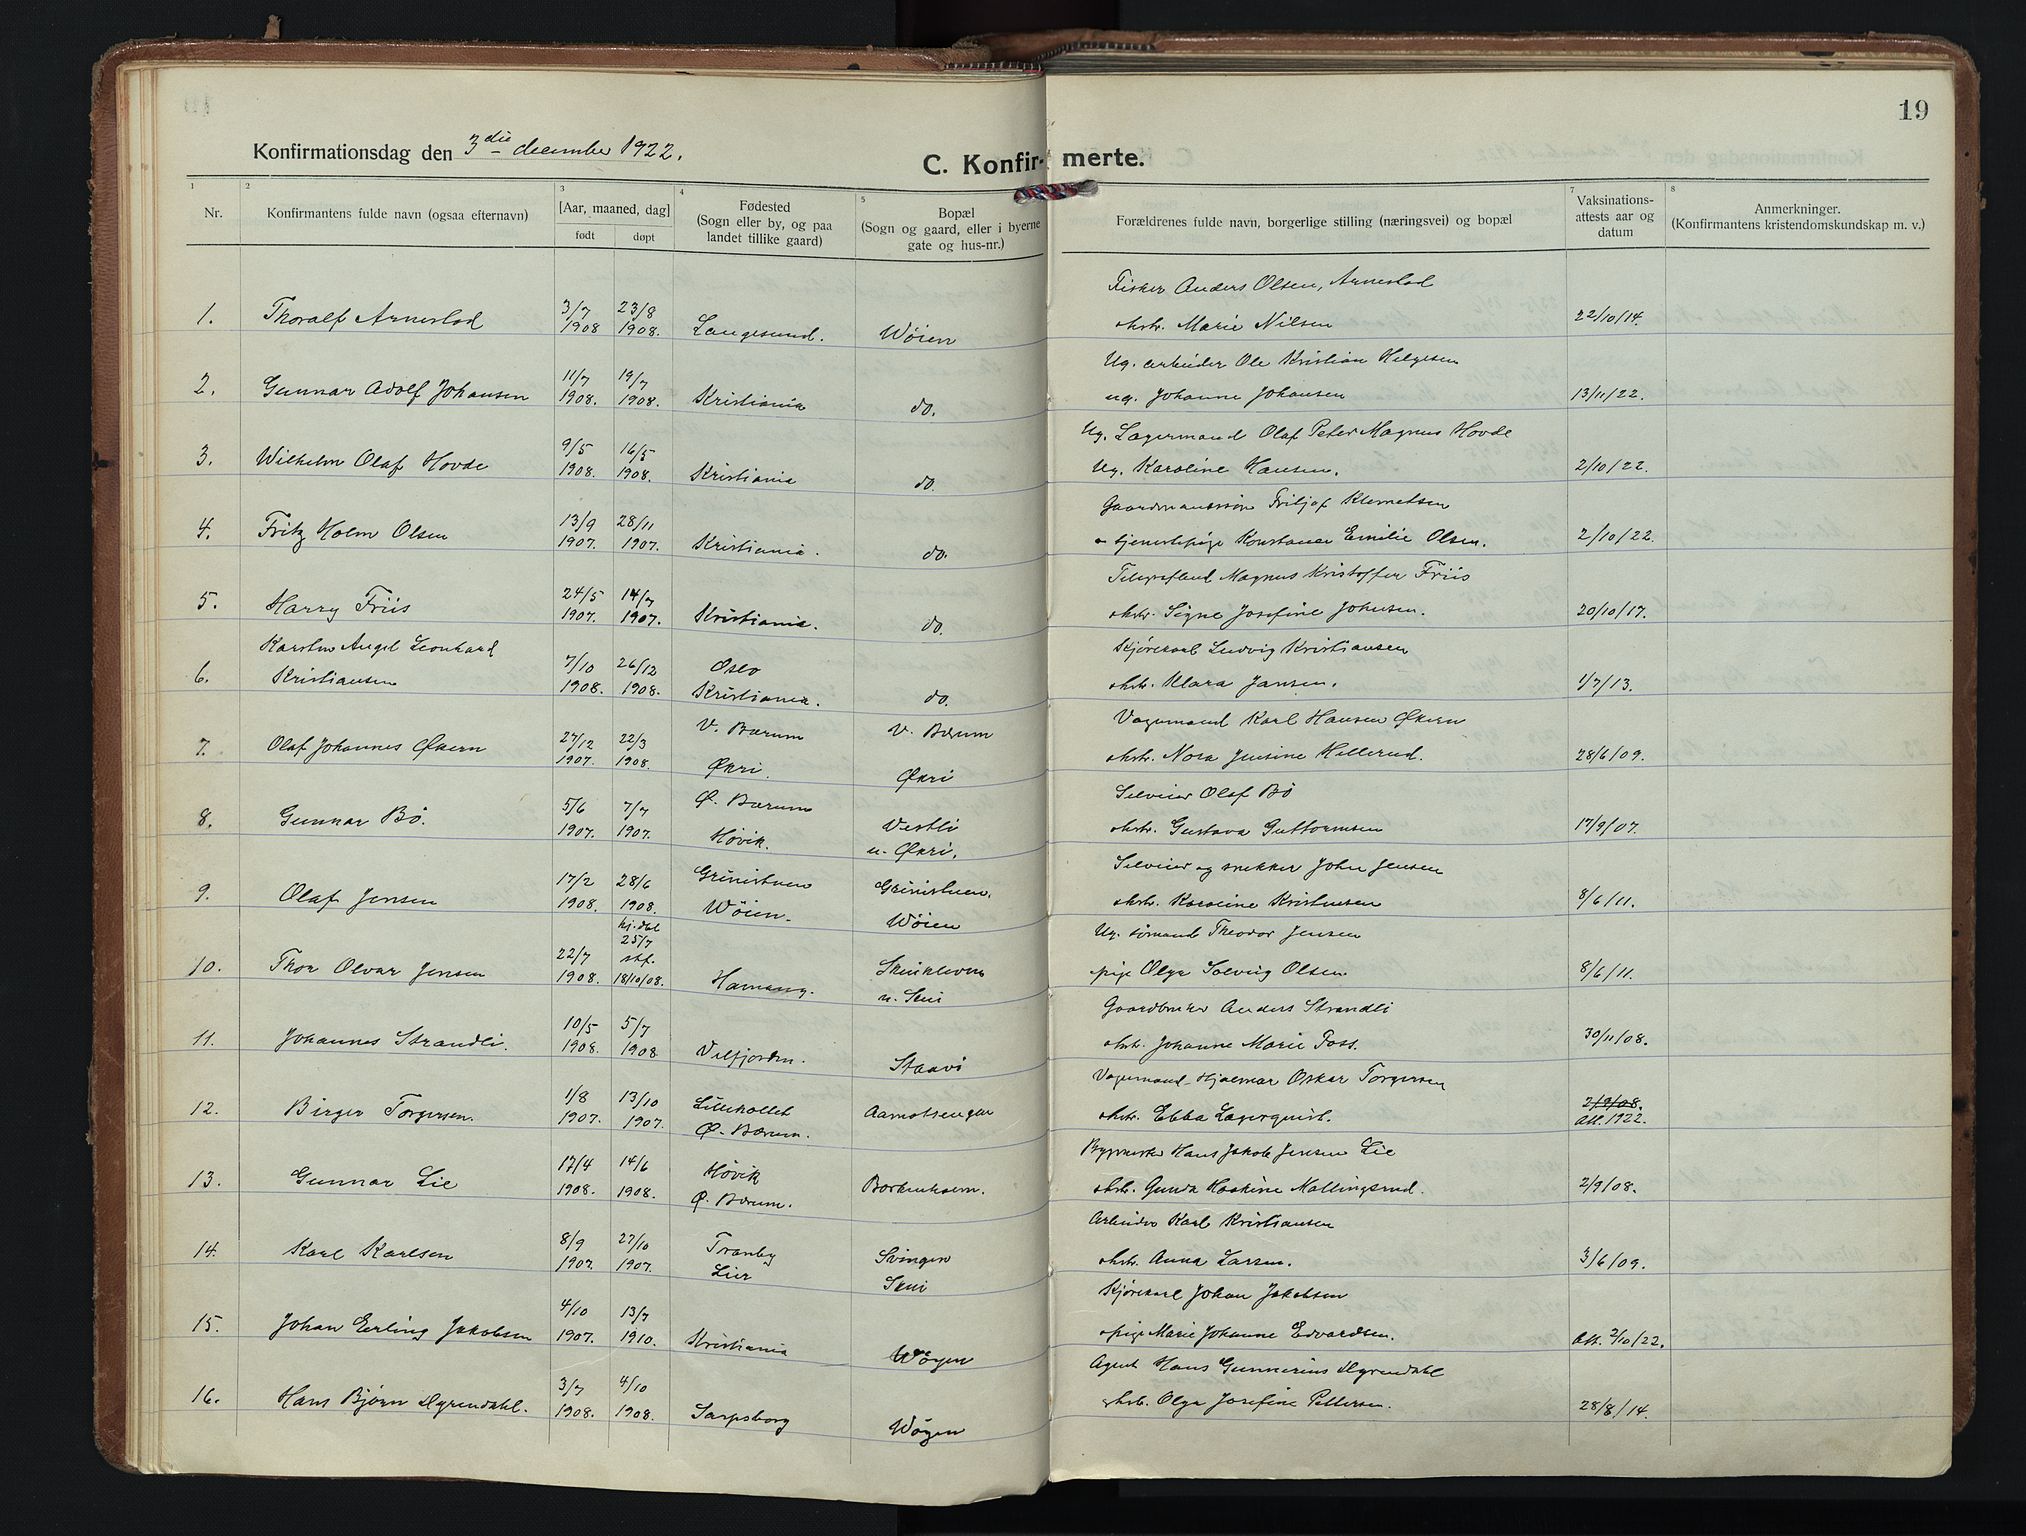 19
Konfirmationsdag den 3die december 1922.
C. Konfirmerte.
1 2 3 4 5 7 8
Nr.
Konfirmantens fulde navn (ogsaa efternavn)
[Aar, maaned, dag]
født døpt
Fødested
(Sogn eller by, og paa
landet tillike gaard)
Bopæl
(Sogn og gaard, eller i byerne
gate og hus-nr.)
Forældrenes fulde navn, borgerlige stilling (næringsvei) og bopæl
Vaksinations-
attests aar og
datum
Anmerkninger.
(Konfirmantens kristendomskundskap m. v.)
Fisker Anders Olsen, Arnestad
1. Thoralf Arnestad 3/7 1908 23/8 1908. Langesund. Wøien
&hstr. Marie Nilsen 22/10/14.
Ug. arbeider Ole Kristian Helgesen
2. Gunnar Adolf Johansen 11/7 1908. 19/7 1908. Kristiania do.
ug. Johanne Johansen 13/11/22.
Ug. Lagermand Olaf Peter Magnus Hovde
3. Wilhelm Olaf Hovde 9/5 1908. 16/5 1908. Kristiania do.
Ug. Karoline Hansen. 2/10/22.
Gaardmandssøn Fritjof Klemetsen
4. Fritz Holm Olsen 13/9 1907. 28/11 1907. Kristiania. do.
tjenestepige Konstance Emilie Olsen. 2/10/22.
Magnus Kristoffer Friis
5. Harry Friis 24/5 1907. 14/7 1907. Kristiania. do.
&hstr. Signe Josefine Johnsen. 20/10/17.
Karsten Angel Leonhard
Skjørekarl Ludvig Kristiansen
6. Kristiansen 7/10 1908. 26/12 1908. Oslo Kristiania. do.
&hstr. Klara Jansen. 1/7/13.
Vognmand Karl Hansen Økern
7. Olaf Johannes Økern 27/12 1907. 22/3 1908. V. Bærum Økri. V. Bærum Økri
&hstr. Nora Jensine Hellerud. 28/6/09.
Selveier Olaf Bø
8. Gunnar Bø. 5/6 1907. 7/7 1907. Ø. Bærum Høvik. Vestli u. Økri.
&hstr. Gustava Guttormsen 17/9/07.
Selveier og snekker John Jensen
9. Olaf Jensen 17/2 1908. 28/6 1908. Grinistuen Wøien. Grinistuen. Wøien
&hstr. Karoline Kristensen 8/6/11.
Ug. sømand Theodor Jensen
10. Thor Olvar Jensen 22/7 1908. hj. døt 25/7 stf. 18/10/08. Hamang. Skuikleven u. Skui
pige Olga Solveig Olsen 8/6/11.
Gaardbruker Anders Strandli
11. Johannes Strandli. 10/5 1908. 5/7 1908 Velfjorden. Staavi
&hstr. Johanne Marie Foss. 30/11/08.
Vognmand Hjalmar Oskar Torgersen
12. Birger Torgersen. 1/8 1907. 13/10 1907. Lillekollet Ø. Bærum. Aamotsengen
&hstr. Ebba Lagerqvist. 2/9/08. Att. 1922.
Hans Jakob Jensen Lie
13. Gunnar Lie 17/4 1908. 14/6 1908. Høvik Ø. Bærum. Børkenholm.
&hstr. Gunda Hoskine Mallingsrud. 2/9/08.
Arbeider Karl Kristiansen
14. Karl Karlsen 8/9 1907. 27/10 1907. Tranby Lier Svingen Skui
&hstr. Anna Larsen. 3/6/09.
Skjørekarl Johan Jakobsen
15. Johan Erling Jakobsen 4/10 1907. 13/7 1910. Kristiania Wøyen
&pige Marie Johanne Edvardsen. Att. 2/10/22.
Agent Hans Gunnerius Myrendahl
16. Hans Bjørn Myrendahl. 3/7 1908. 4/10 1908. Sarpsborg Wøyen
&hstr. Olga Josefine Pettersen. 28/8/14.